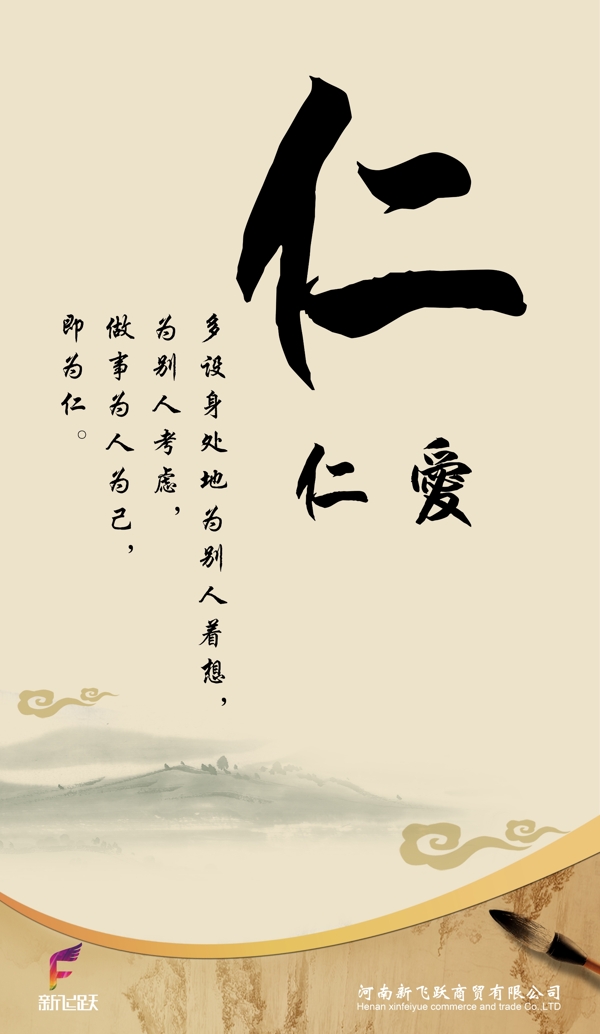 仁
仁愛
多设身处地为别人着想，
为别人考虑，
做事为人为己，
即为仁。
新飞跃
河南新飞跃商贸有限公司
Henan xinfeiyue commerce and trade Co. LTD